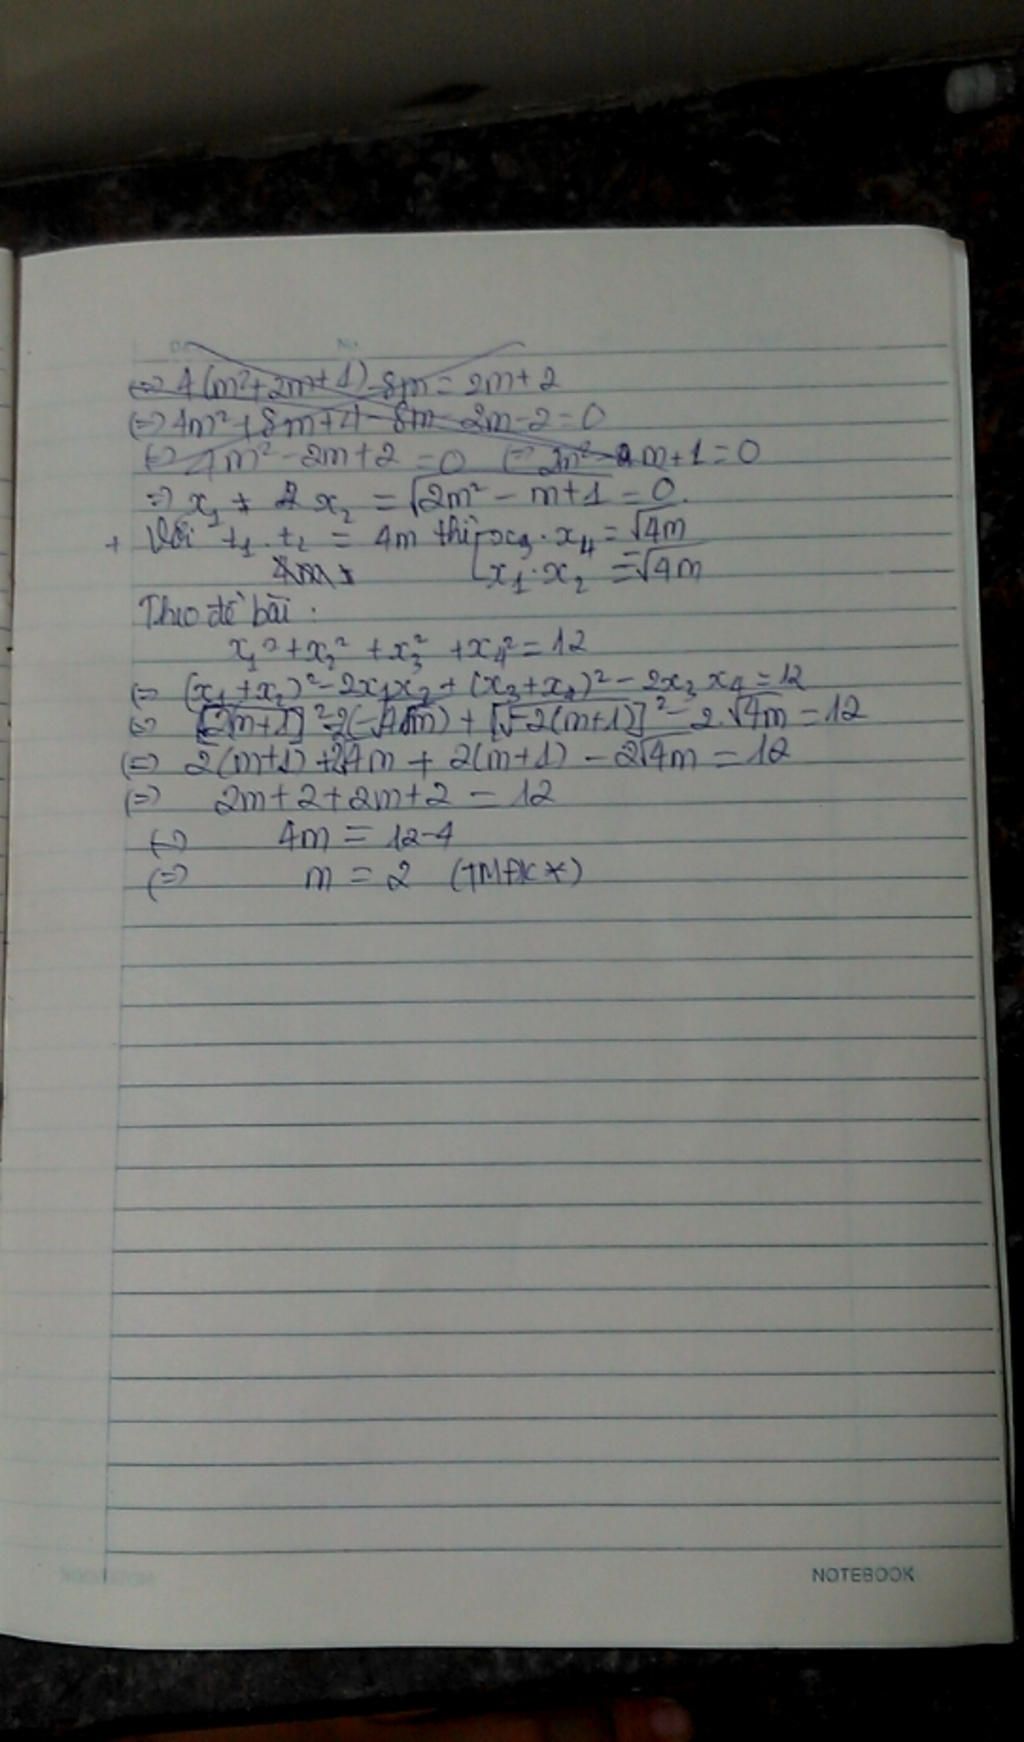 No
⇔ 4(m²+2m+1)-8m = 2m+2
⇔ 4m²+8m+4-8m-2m-2=0
⇔ 4m²-2m+2=0 ⇔ 2m²-m+1=0
⇒ x₁ + x₂ = √2m²-m+1 = 0.
+ Với t₁.t₂ = 4m thì x₃.x₄ = √4m
x₁.x₂ = -√4m
Theo đề bài:
x₁²+x₂²+x₃²+x₄²=12
⇔ (x₁+x₂)²-2x₁x₂+(x₃+x₄)²-2x₃x₄=12
⇔ [√2(m+1)]²-2(-√4m)+[√-2(m+1)]²-2.√4m=12
⇔ 2(m+1)+2√4m+2(m+1)-2√4m=12
⇔ 2m+2+2m+2=12
⇔ 4m=12-4
⇔ m=2 (TMĐK*)
NOTEBOOK